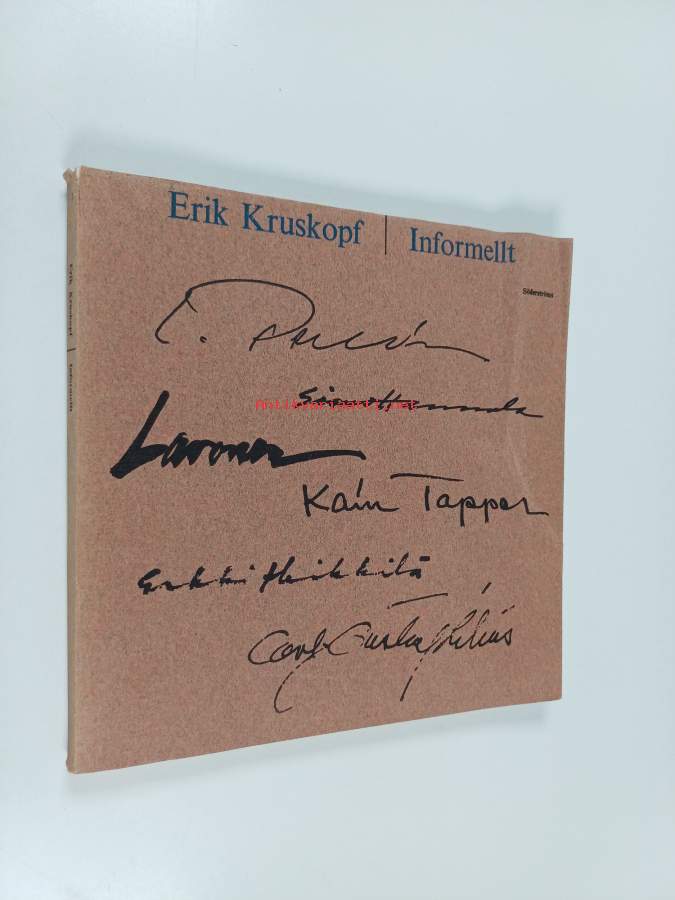 Erik Kruskopf | Informellt
Söderströms
Simo Hannula
antikvariaatti.net
Lavonen
Kain Tapper
Erkki Heikkilä
Carl-Gustaf Lilius
Erik Kruskopf | Informellt